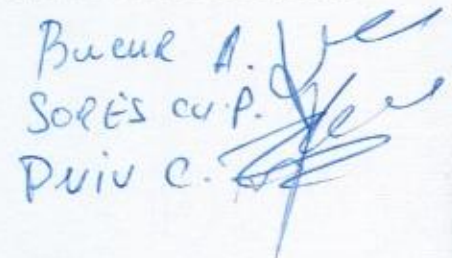 Bucur A.
SORES CV.P.
DUIU C.